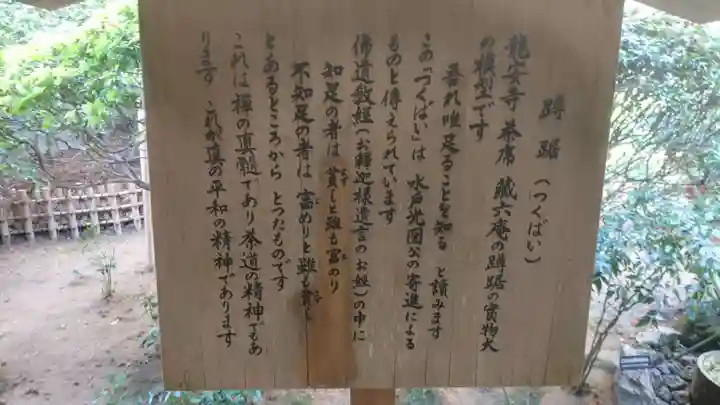 蹲踞（つくばい）
龍安寺 茶席 蔵六庵の蹲踞の実物大
の模型です
吾れ唯足ることを知る と読みます
この「つくばい」は 水戸光圀公の寄進による
ものと傳えられています
佛道教経（お釋迦様遺言のお経）の中に
知足の者は 貧しと雖も富めり
不知足の者は 富めりと雖も貧し
とあるところから とつたものです
これは禅の真髄であり茶道の精神でもあ
ります これが真の平和の精神であります